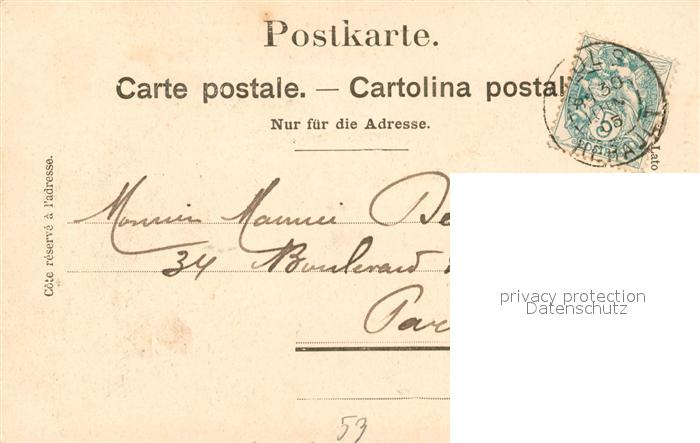 Postkarte.
Carte postale. — Cartolina postal
Nur für die Adresse.
Côte réservé à l'adresse.
Lato
30
05
5
POSTES
Monsieur Maurice De
34 Boulevard
Par
privacy protection
Datenschutz
53